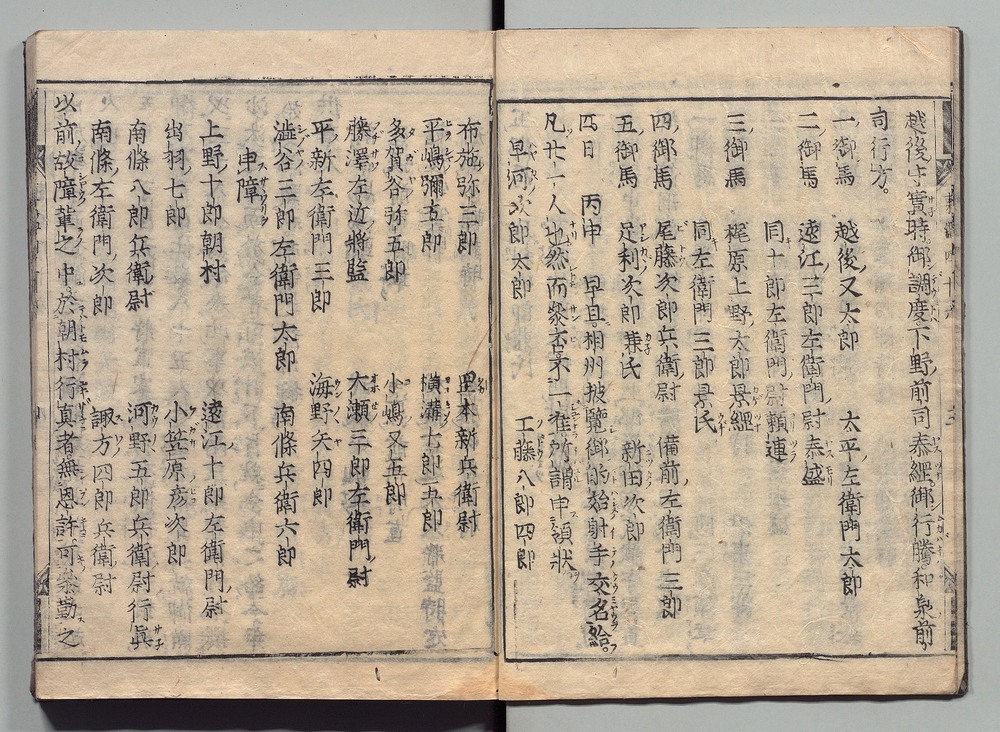 越後守實時御調度下野前司泰經御行騰和泉前
司行方。
一御馬 越後又太郎 太平左衛門太郎
二御馬 遠江三郎左衛門尉泰盛
同十郎左衛門尉頼連
三御馬 梶原上野太郎景經
同左衛門三郎景氏
四御馬 尾藤次郎兵衛尉 備前左衛門三郎
五御馬 足利次郎兼氏 新田次郎
四日 丙申 早旦相州披覽御的始射手交名給。
凡廿一人也然而衆否不一准所謂申領状
早河次郎太郎 工藤八郎四郎
布施弥三郎 岡本新兵衛尉
平嶋彌五郎 横溝七郎五郎
多賀谷弥五郎 小嶋又五郎
藤澤左近將監 大瀬三郎左衛門尉
平新左衛門三郎 海野矢四郎
澁谷三郎左衛門太郎 南條兵衛六郎
申障
上野十郎朝村 遠江十郎左衛門尉
出羽七郎 小笠原彦次郎
南條八郎兵衛尉 河野五郎兵衛尉行眞
南條左衛門次郎 諏方四郎兵衛尉
以前故障輩之中於朝村行真者無恩許可參勤之